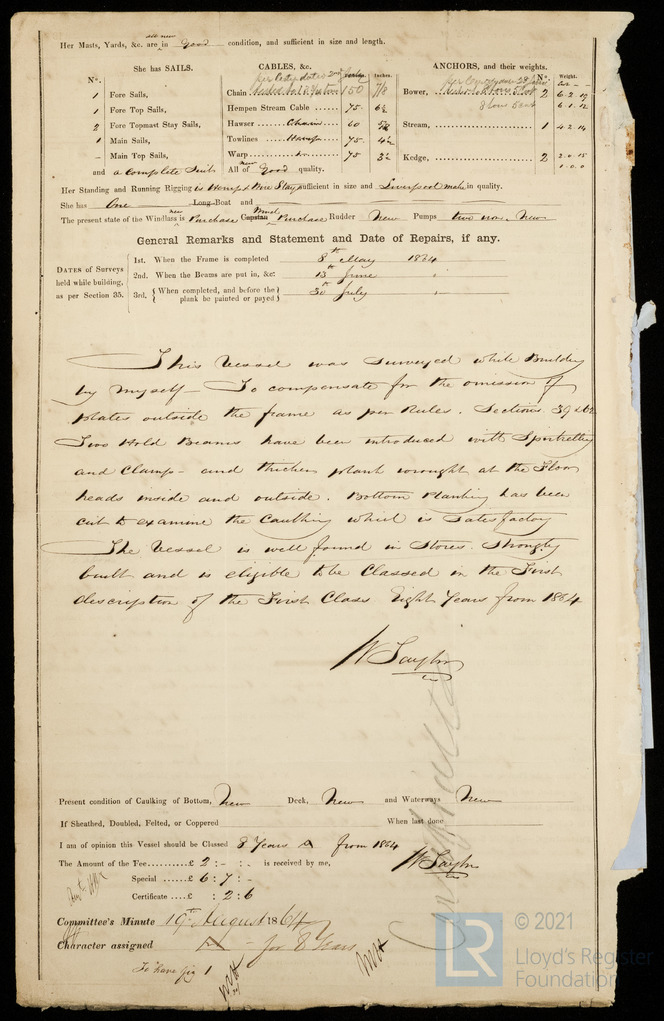 all new
Her Masts, Yards, &c. are in good condition, and sufficient in size and length.
She has SAILS.
N°.
1 Fore Sails,
1 Fore Top Sails,
2 Fore Topmast Stay Sails,
1 Main Sails,
– Main Top Sails,
and a complete Suit
CABLES, &c.
Inches.
Chain 150 7/8
Hempen Stream Cable ...... 75 6½
Hawser ...... Chain 60
Towlines ...... Hemp 75 4½
Warp ...... 75 3½
All of new good quality.
ANCHORS, and their weights.
N°. Weight.
Bower, 2 6-2-19
6-1-12
Stream, 1 4-2-14
Kedge, 2 2-0-15
1-0-0
Her Standing and Running Rigging is Hemp & Wire Stay sufficient in size and Liverpool make in quality.
She has One Long-Boat and
The present state of the Windlass is new Purchase Capstan Purchase Rudder New Pumps two no. New
General Remarks and Statement and Date of Repairs, if any.
DATES of Surveys held while building, as per Section 35.
1st. When the Frame is completed 8th May 1864
2nd. When the Beams are put in, &c. 13th June "
3rd. { When completed, and before the plank be painted or payed } 30th July "
This Vessel was Surveyed while Building
by myself – To compensate for the omission of
plates outside the frame as per Rules. Sections 39 & 62
Two Hold Beams have been introduced with Spirketting
and Clamp – and thicker plank wrought at the Floor
heads inside and outside. Bottom Planking has been
cut to examine the Caulking which is Satisfactory
The Vessel is well found in Stores. Strongly
built and is eligible to be Classed in the First
description of the First Class Eight Years from 1864
W Taylor
Present condition of Caulking of Bottom, New Deck, New and Waterways New
If Sheathed, Doubled, Felted, or Coppered When last done
I am of opinion this Vessel should be Classed 8 Years A from 1864
The Amount of the Fee..........£ 2 : - : - is received by me, W Taylor
Special ......£ 6 : 7 : -
Certificate ....£ : 2 : 6
Committee's Minute 19th August 1864
Character assigned A – for 8 Years
To have fig 1
© 2021
LR
Lloyd's Register
Foundation